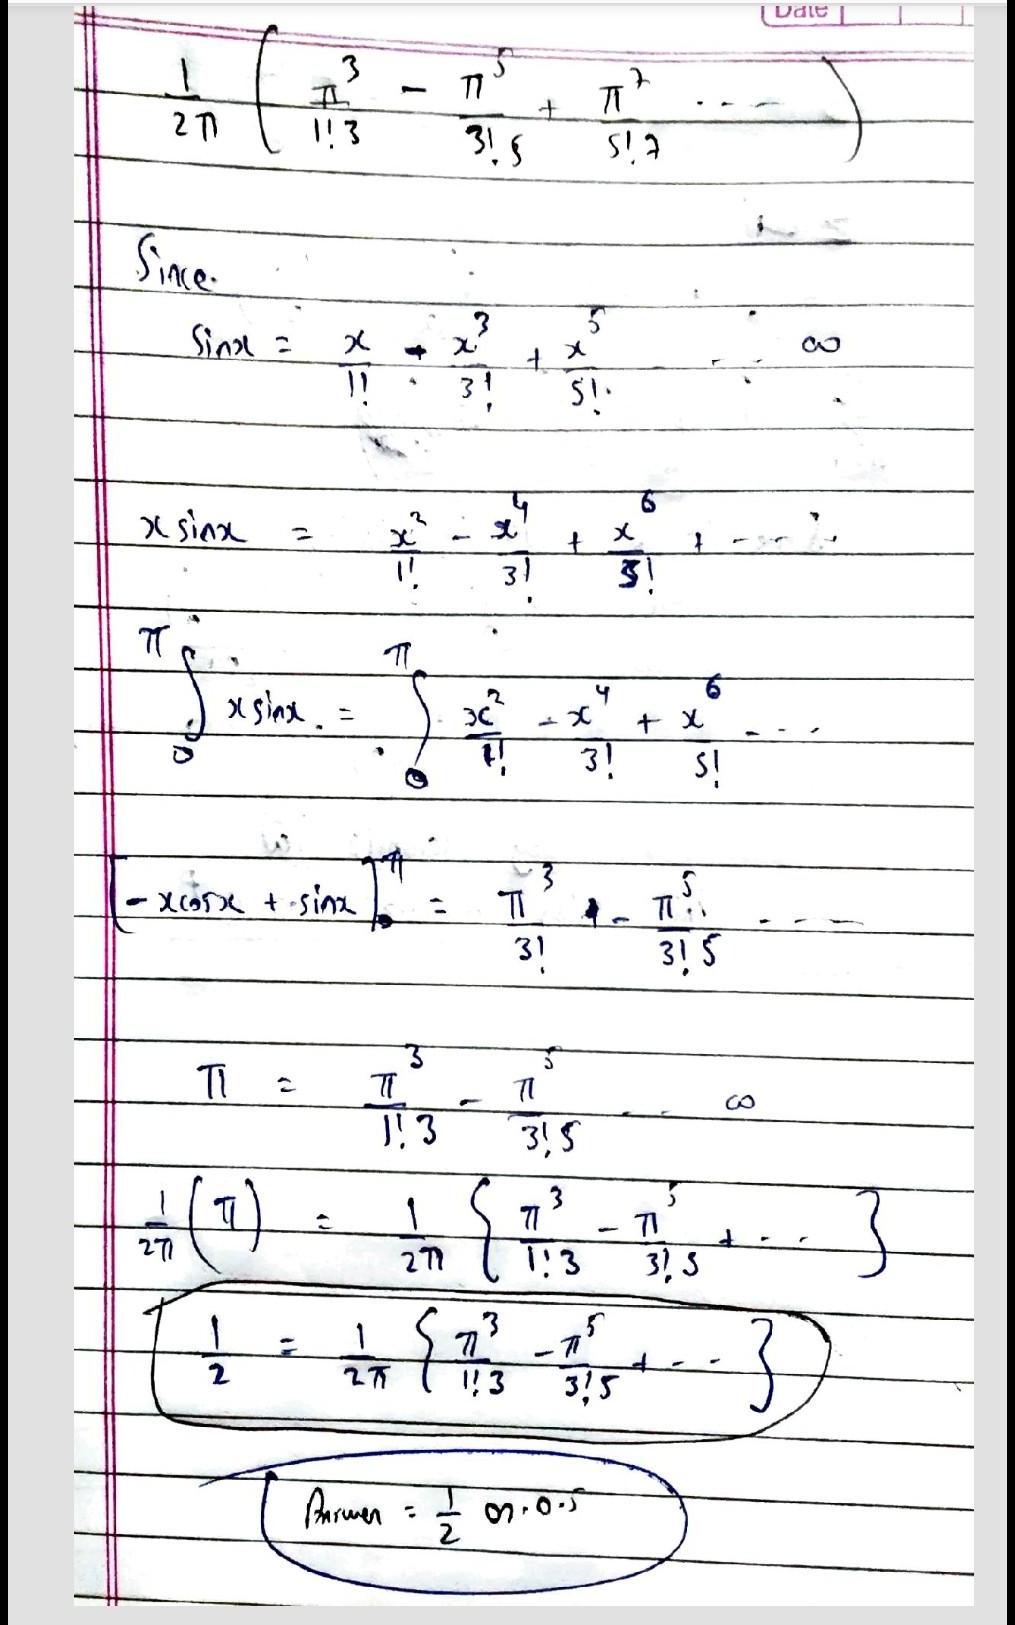 Date
1/2π ( π³/1!3 - π⁵/3!5 + π⁷/5!7 ---- )
Since.
Sinx = x/1! - x³/3! + x⁵/5! ---- ∞
x sinx = x²/1! - x⁴/3! + x⁶/5! + ----
∫₀^π x sinx = ∫₀^π x²/1! - x⁴/3! + x⁶/5! ----
[-xcosx + sinx]₀^π = π³/3! - π⁵/3!5 ----
π = π³/1!3 - π⁵/3!5 ---- ∞
1/2π (π) = 1/2π { π³/1!3 - π⁵/3!5 + ---- }
1/2 = 1/2π { π³/1!3 - π⁵/3!5 + ---- }
Answer = 1/2 or 0.5